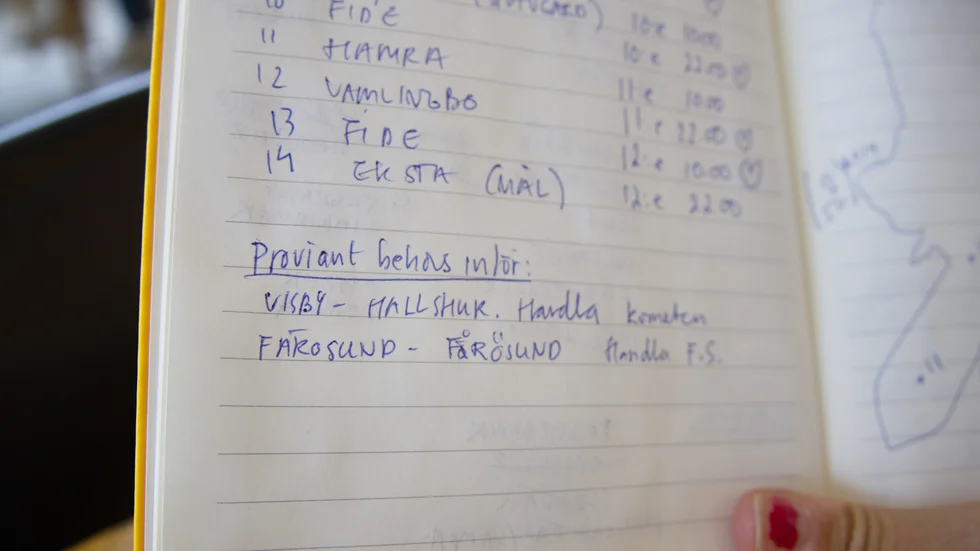 10 FIDE 10:e 10.00
11 HAMRA 10:e 22.00 ♡
12 VAMLINGBO 11:e 10.00
13 FIDE 11:e 22.00 ♡
14 EKSTA (MÅL) 12:e 10.00 ♡
12:e 22.00
Proviant behövs inför:
VISBY - HALLSHUK. Handla kometen
FÅRÖSUND - FÅRÖSUND Handla F.S.
11